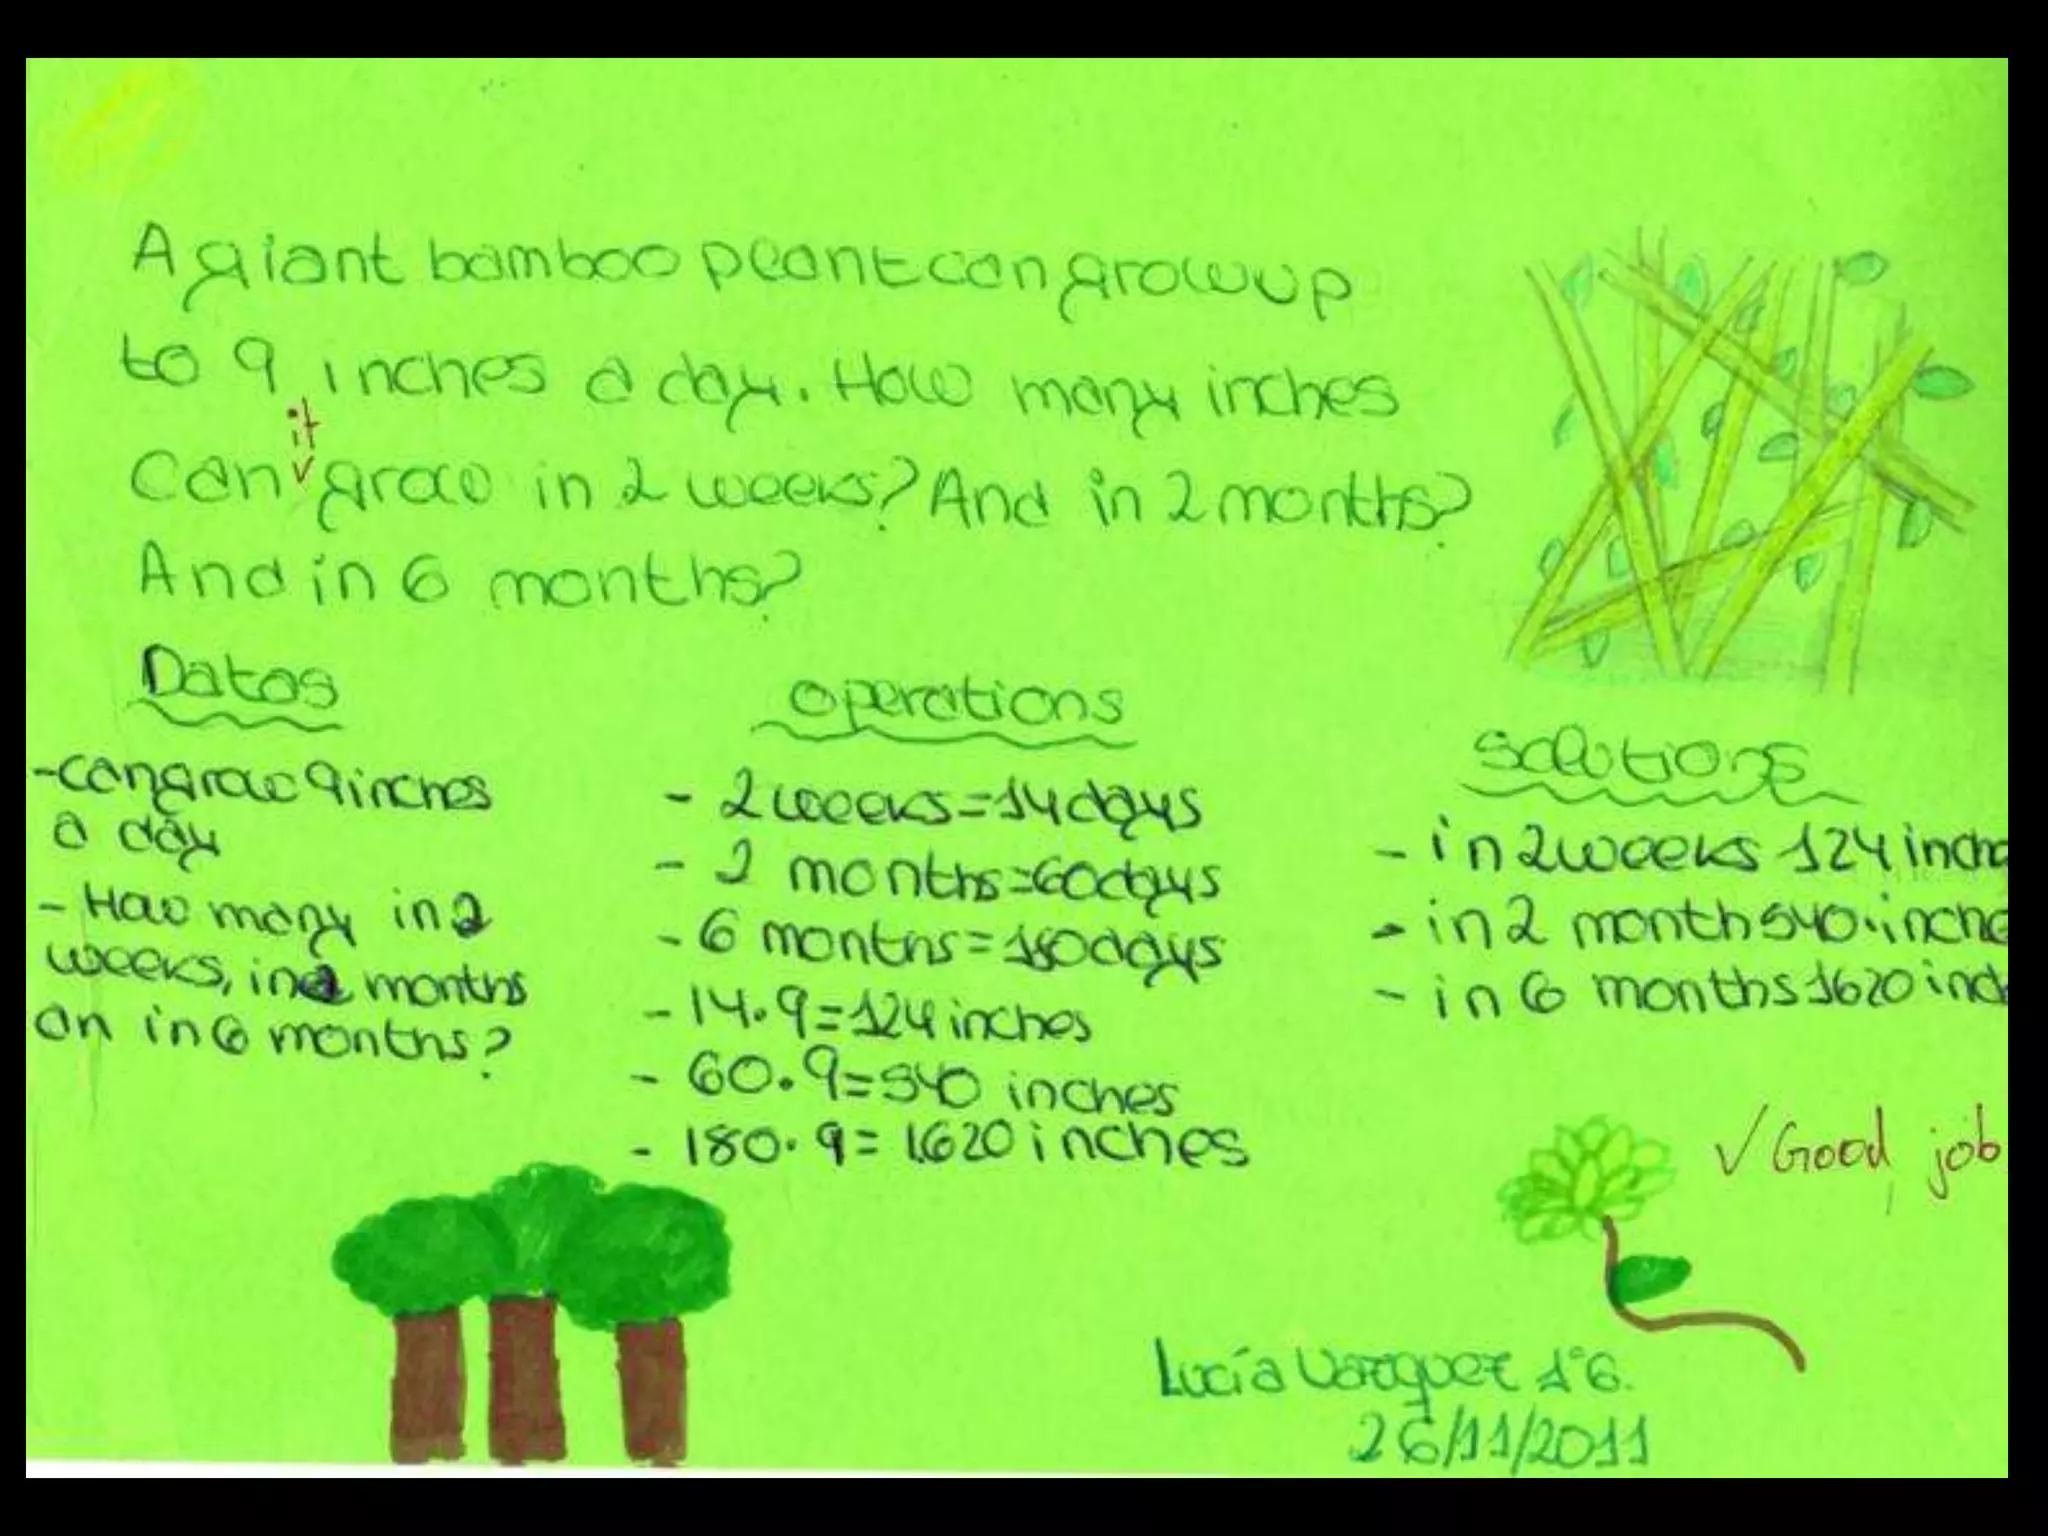 A giant bamboo plant can grow up
to 9 inches a day. How many inches
can it grow in 2 weeks? And in 2 months?
And in 6 months?
Datos
-can grow 9 inches
a day
- How many in 2
weeks, in 2 months
an in 6 months?
operations
- 2 weeks=14 days
- 2 months=60 days
- 6 months=180 days
- 14.9=124 inches
- 60.9=540 inches
- 180.9=1620 inches
solutions
- in 2 weeks 124 inche
- in 2 month 540 inche
- in 6 months 1620 inch
✓ Good job
Lucía Vazquez 1º6.
26/11/2011